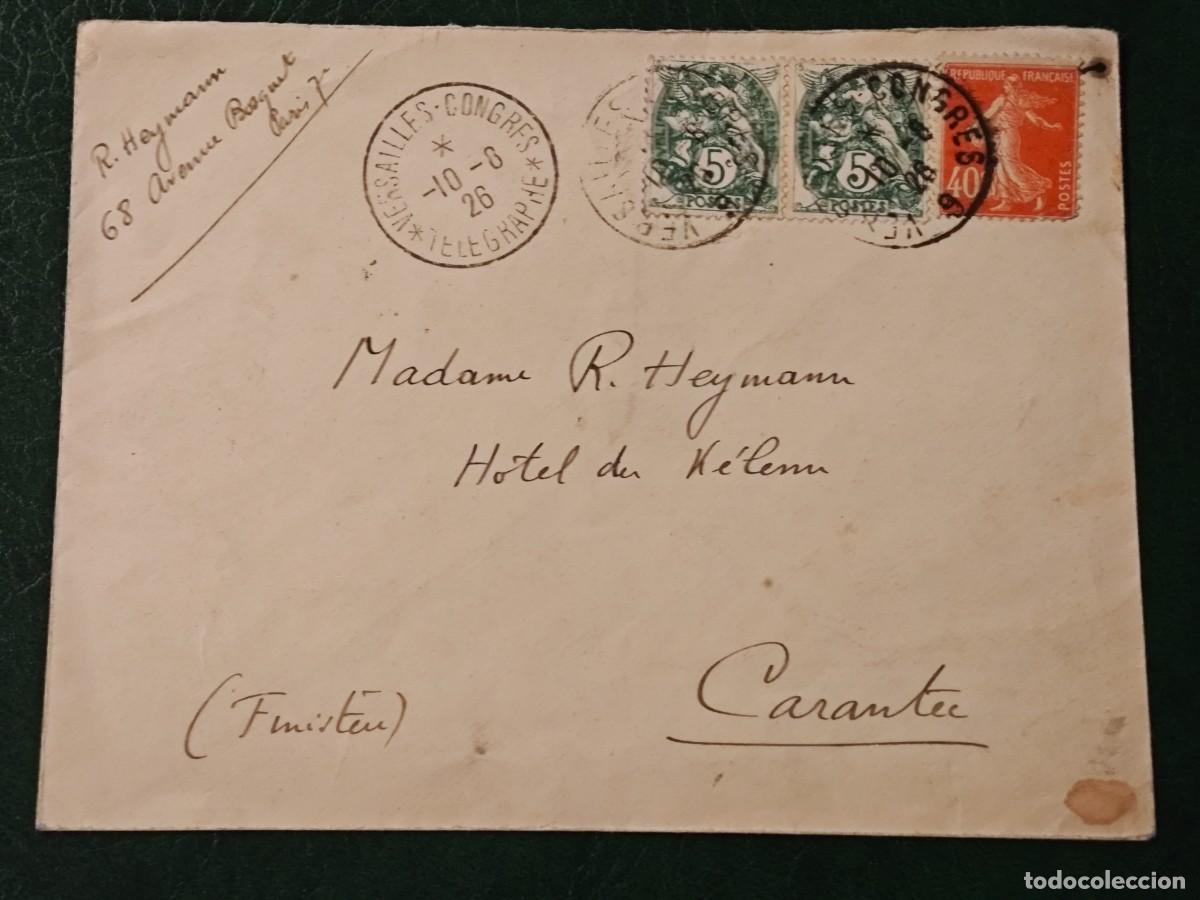 R. Heymann
68 Avenue Bosquet
Paris 7e
VERSAILLES-CONGRES
*
10-8
26
* TELEGRAPHE *
5
POSTES
5
POSTES
CONGRES
10
26
REPUBLIQUE FRANÇAISE
40
POSTES
Madame R. Heymann
Hôtel du Kélenn
Carantec
(Finistère)
todocoleccion